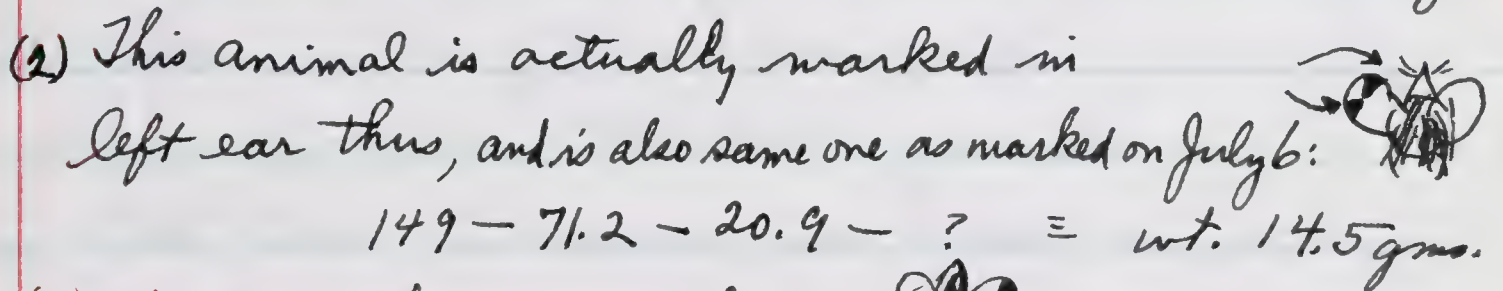 (2) This animal is actually marked in
left ear thus, and is also same one as marked on July 6:
149 – 71.2 – 20.9 – ? ≡ wt. 14.5 gms.